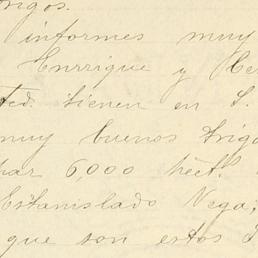 trigos.
informes muy
Enrrique y Ce
ted. tienen en S.
muy buenos trigo
par 6,000 hect.
Estanislado Vega;
que son estos